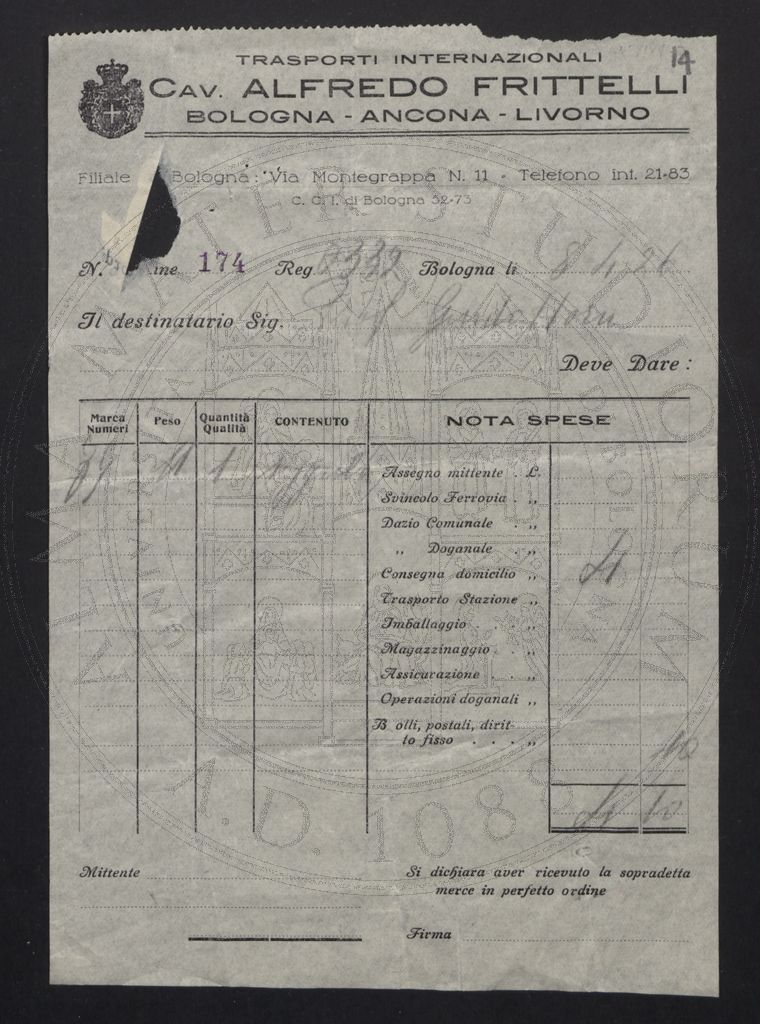 14
TRASPORTI INTERNAZIONALI
CAV. ALFREDO FRITTELLI
BOLOGNA - ANCONA - LIVORNO
Filiale Bologna: Via Montegrappa N. 11 - Telefono int. 21-83
C. C. I. di Bologna 32-73
N. ine 174 Reg. Bologna li 8 4 26
Il destinatario Sig. Prof Guido Horn
Deve Dare:
Marca Numeri Peso Quantità Qualità CONTENUTO NOTA SPESE
1
Assegno mittente . L.
Svincolo Ferrovia . „
Dazio Comunale . „
„ Doganale . „
Consegna domicilio „ 4
Trasporto Stazione „
Imballaggio . . „
Magazzinaggio . „
Assicurazione . . „
Operazioni doganali „
Bolli, postali, dirit-
to fisso . . . „ 10
4 10
Mittente
Si dichiara aver ricevuto la sopradetta
merce in perfetto ordine
Firma
ALMA MATER STUDIORUM
A.D. 1088